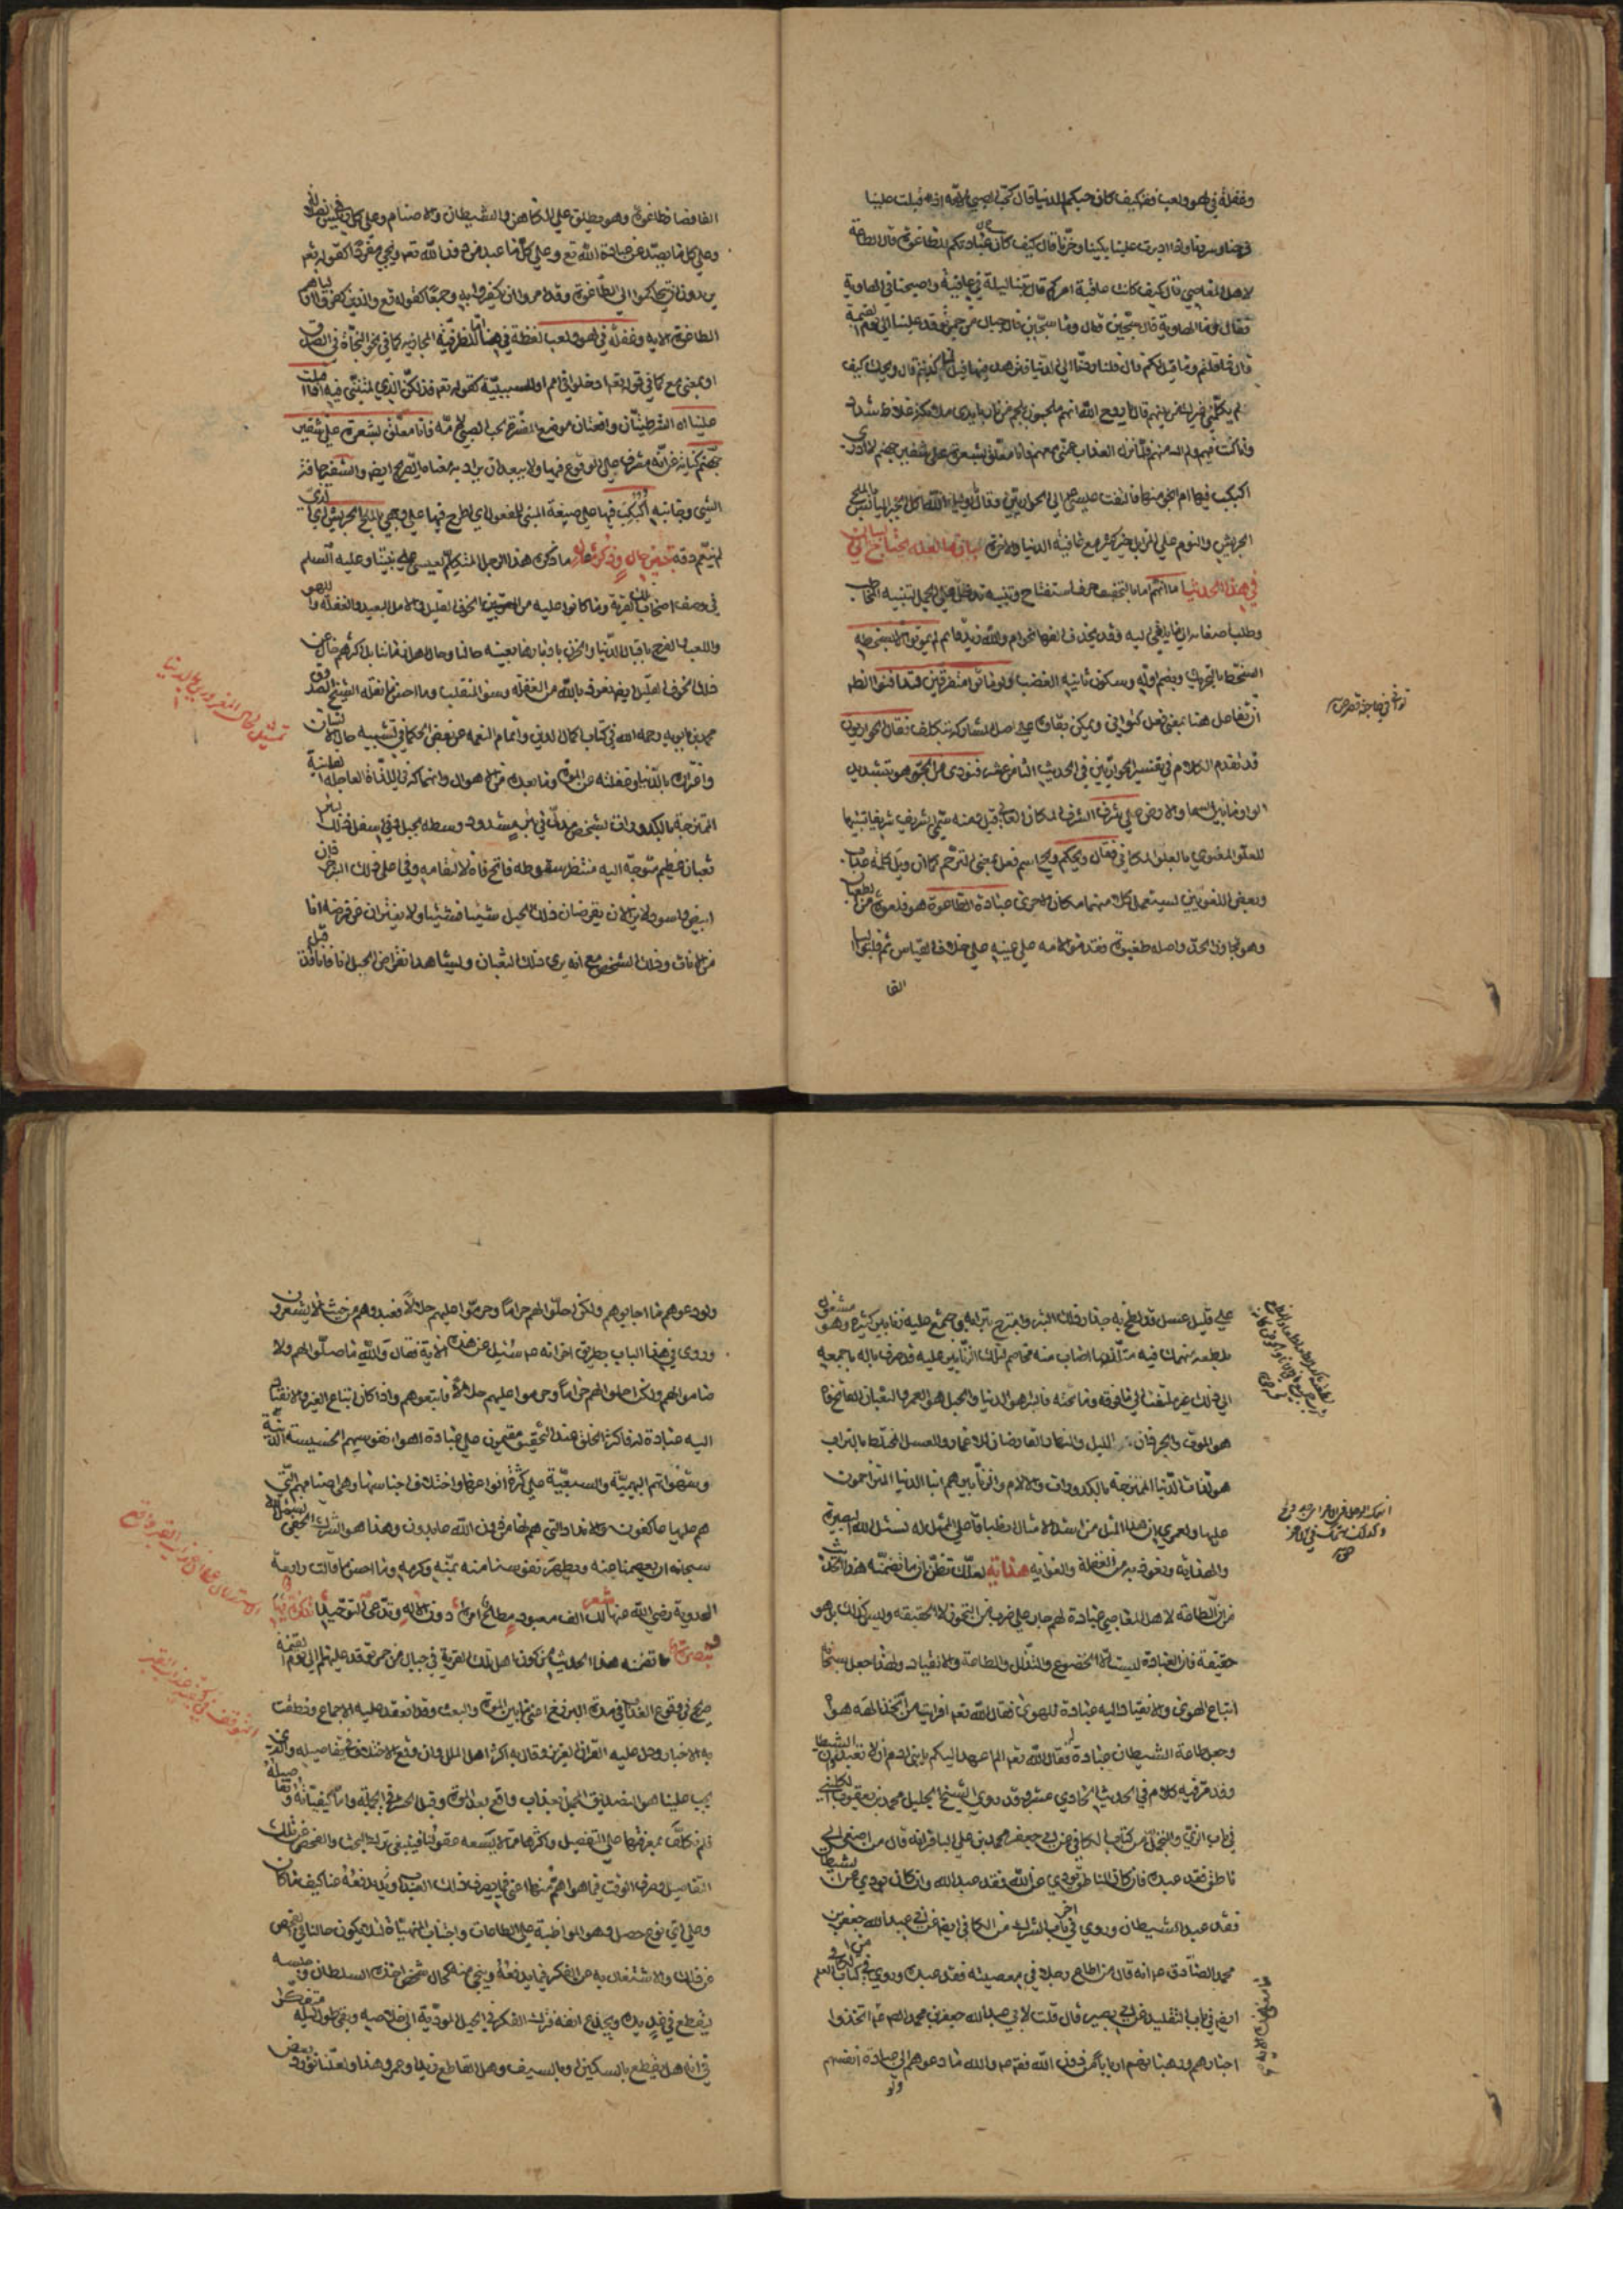 وغفلة في لهو ولعب فقال كيف كان حبكم للدنيا قال كحب الصبي لامه اذا اقبلت علينا
فرحنا وسررنا واذا ادبرت علينا بكينا وحزنا قال كيف كان عبادتكم للطاغوت قال الطاعة
لاهل المعاصي قال كيف كانت عاقبة امركم قال بتنا ليلة في عافية واصبحنا في الهاوية
فقال وما الهاوية قال سجين قال وما سجين قال جبال من جمر توقد علينا الى يوم القيمة
قال فما قلتم وما قيل لكم قال قلنا ردنا الى الدنيا فنزهد فيها قيل لنا كذبتم قال ويحك كيف
لم يكلمني غيرك من بينهم قال يا روح الله انهم ملجمون بلجم من نار بايدي ملائكة غلاظ شداد
وانا كنت فيهم ولم اك منهم فلما نزل العذاب عمني معهم فانا معلق بشعرة على شفير جهنم لا ادري
اكبكب فيها ام انجو منها فالتفت عيسى الى الحواريين وقال يا اولياء الله اكل الخبز اليابس بالملح
الجريش والنوم على المزابل خير كثير مع عافية الدنيا والاخرة بيان ما لعله يحتاج الى البيان
في هذا الحديث اما انهم اما بالتخفيف حرف استفتاح وتنبيه تدخل على الجمل لتنبيه المخاطب
وطلب اصغائه الى ما يلقى اليه وقد يحذف الفها نحو ام والله زيد قائم لم يموتوا الا بسخطة
السخط بالتحريك وبضم اوله وسكون ثانيه الغضب ولو ماتوا متفرقين لتدافنوا الظاهر
ان تفاعل هنا بمعنى فعل كتوانى ويمكن ابقاؤه على اصل المشاركة بتكلف فقال الحواريون
قد تقدم الكلام في تفسير الحواريين في الحديث الثامن عشر فنودي من الجو هو بتشديد
الواو ما بين السماء والارض على شرف الشرف المكان العالي قيل ومنه سمي الشريف شريفا تشبيها
للعلو المعنوي بالعلو المكاني فقال ويحكم ويح اسم فعل بمعنى الترحم كما ان ويل كلمة عذاب
وبعض اللغويين يستعمل كلا منهما مكان الاخرى عبادة الطاغوت هو فلعوت من الطغيان
وهو تجاوز الحد واصله طغيوت فقدموا لامه على عينه على خلاف القياس ثم قلبوا الياء
الفا
الفا فصار طاغوت وهو يطلق على الكاهن والشيطان والاصنام وعلى كل رئيس في الضلالة
وعلى كل ما يصد عن عبادة الله تع وعلى كل ما عبد من دون الله تعم ويجئ مفردا كقوله تعم
يريدون ان يتحاكموا الى الطاغوت وقد امروا ان يكفروا به وجمعا كقوله تع والذين كفروا اولياؤهم
الطاغوت الاية وغفلة في لهو ولعب لفظة في هنا للظرفية المجازية كما في نحو النجاة في الصدق
او بمعنى مع كما في قوله تعم ادخلوا في امم او للسببية كقوله تعم فذلكن الذي لمتنني فيه اذا اقبلت
علينا اه الشرطيتان واقعتان موضع التفسير لحب الصبي لامه فانا معلق بشعرة على شفير
جهنم كناية عن انه مشرف على الوقوع فيها ولا يبعد ان يراد به معناه الصريح ايضا والشفير حافة
الشئ وجانبه اكبكب فيها على صيغة المبني للمفعول اي اطرح فيها على وجهي بالملح الجريش اي الذي
لم ينعم دقه
ما ذكره هذا الرجل المتكلم لعيسى على نبينا وعليه السلم
في وصف اصحاب تلك القرية وما كانوا عليه من الخوف القليل والامل البعيد والغفلة واللهو
واللعب والفرح باقبال الدنيا والحزن بادبارها بعينه حالنا وحال اهل زماننا بل اكثرهم خال عن
ذلك الخوف القليل ايضا نعوذ بالله من الغفلة وسوء المنقلب وما احسن ما نقله الشيخ الصدوق
محمد بن بابويه رحمه الله في كتاب اكمال الدين واتمام النعمة عن بعض الحكماء في تشبيه حال الانسان
واغتراره بالدنيا وغفلته عن الموت وما بعده من الاهوال وانهماكه في اللذات العاجلة الفانية
الممتزجة بالكدورات بشخص مدلى في بئر مشدود وسطه بحبل وفي اسفل ذلك البئر
ثعبان عظيم متوجه اليه منتظر سقوطه فاتح فاه لالتقامه وفي اعلى ذلك البئر جرذان
ابيض واسود لا يزالان يقرضان ذلك الحبل شيئا فشيئا ولا يفتران عن قرضه انا
من الانات وذلك الشخص مع انه يرى ذلك الثعبان ويشاهد انقراض الحبل انا فانا قد اقبل
على قليل عسل قد لطخ به جدار ذلك البئر وامتزج بترابه واجتمع عليه زنابير كثيرة وهو مشغول
بلطعه منهمك فيه متلذذ بما اصاب منه مخاصم لتلك الزنابير عليه قد صرف باله باجمعه
الى ذلك غير ملتفت الى ما فوقه وما تحته فالبئر هو الدنيا والحبل هو العمر والثعبان الفاتح فاه
هو الموت والجرذان الليل والنهار القارضان للاعمار والعسل المختلط بالتراب
هو لذات الدنيا الممتزجة بالكدورات والالام والزنابير هم ابناء الدنيا المتزاحمون
عليها ولعمري ان هذا المثل من اشد الامثال انطباقا على الممثل له نسئل الله البصيرة
والهداية ونعوذ به من الغفلة والغواية هداية لعلك تظن ان ما تضمنه هذا الحديث
من ان الطاعة لاهل المعاصي عبادة لهم جار على ضرب من التجوز لا الحقيقة وليس كذلك بل هو
حقيقة فان العبادة ليست الا الخضوع والتذلل والطاعة والانقياد ولهذا جعل سبحانه
اتباع الهوى والانقياد اليه عبادة للهوى فقال الله تعم افرايت من اتخذ الهه هواه
وجعل طاعة الشيطان عبادة له فقال الله تعم الم اعهد اليكم يا بني ادم ان لا تعبدوا الشيطان
وقد مر فيه كلام في الحديث الحادي عشر وقد روى الشيخ الجليل محمد بن يعقوب الكليني
في باب الزي والتجمل من كتاب الكافي عن ابي جعفر محمد بن علي الباقر انه قال من اصغى الى
ناطق فقد عبده فان كان الناطق يؤدي عن الله فقد عبد الله وان كان يؤدي عن الشيطان
فقد عبد الشيطان وروى في اخر باب الشرك من الكافي ايضا عن ابي عبد الله جعفر بن
محمد الصادق ع انه قال من اطاع رجلا في معصيته فقد عبده وروى في كتاب العلم
ايضا في باب التقليد عن ابي بصير قال قلت لابي عبد الله جعفر بن محمد الص ع اتخذوا
احبارهم ورهبانهم اربابا من دون الله فقال ع والله ما دعوهم الى عبادة انفسهم
ولو
ولو دعوهم ما اجابوهم ولكن احلوا لهم حراما وحرموا عليهم حلالا فعبدوهم من حيث لا يشعرون
وروى في هذا الباب بطريق اخر انه ع سئل عن هذه الاية فقال والله ما صلوا لهم ولا
صاموا لهم ولكن احلوا لهم حراما وحرموا عليهم حلالا فاتبعوهم واذا كان اتباع الغير والانقياد
اليه عبادة له فاكثر الخلق عند التحقيق مقيمون على عبادة اهواء نفوسهم الخسيسة الدنية
وشهواتهم البهيمية والسبعية على كثرة انواعها واختلاف اجناسها وهي اصنامهم التي
هم عليها عاكفون والانداد التي هم لها من دون الله عابدون وهذا هو الشرك الخفي نسئل الله
سبحانه ان يعصمنا عنه ويطهر نفوسنا منه بمنه وكرمه وما احسن ما قالت رابعة
العدوية رضي الله عنها شعر لك الف معبود مطاع امره دون الاله وتدعي التوحيدا
ما تضمنه هذا الحديث من كون اهل تلك القرية في جبال من جمر توقد عليهم الى يوم القيمة
صريح في وقوع العذاب في مدة البرزخ اعني ما بين الموت والبعث وقد انعقد عليه الاجماع ونطقت
به الاخبار ودل عليه القران العزيز وقال به اكثر اهل الملل وان وقع الاختلاف في تفاصيله والذي
يجب علينا هو التصديق المجمل بعذاب واقع بعد الموت وقبل الحشر في الجملة واما كيفياته وتفاصيله
فلم نكلف بمعرفتها على التفصيل واكثرها مما لا يسعه عقولنا فينبغي ترك البحث والفحص عن تلك
التفاصيل وصرف الوقت فيما هو اهم منها اعني فيما يصرف ذلك العذاب ويدفعه عنا كيف ما كان
وعلى اي نوع حصل وهو المواظبة على الطاعات واجتناب المنهيات لئلا يكون حالنا في الفحص
عن ذلك والاشتغال به عن الفكر فيما يدفعه وينجي منه كحال شخص اخذه السلطان وحبسه
ليقطع في غد يده ويجدع انفه فترك الفكر في الحيل المودية الى خلاصه وبقي طول ليله متفكرا
في انه هل يقطع بالسكين او بالسيف وهل القاطع زيد او عمرو هذا ولعلنا نورد بعض